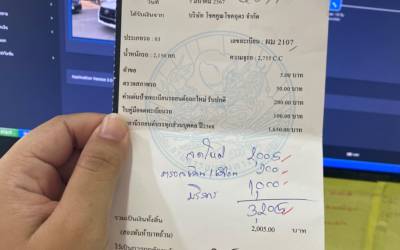 วันที่ มีนาคม 2567
ได้รับเงินจาก บริษัท โชคคูณโชคอุดร จำกัด
ประเภทรถ : 03 เลขทะเบียน : ผม 2107
น้ำหนักรถ : 2,150 กก. ความจุรถ : 2,755 C.C
คำขอ 5.00 บาท
ตรวจสภาพรถ 50.00 บาท
ค่าแผ่นป้ายทะเบียนรถยนต์ออกใหม่ รับปกติ 200.00 บาท
ใบคู่มือจดทะเบียนรถ 100.00 บาท
รถยนต์บรรทุกส่วนบุคคล ปี2568 1,650.00 บาท
จดใหม่ 2005
200
บริการ 1,000
3,205
รวมเป็นเงินทั้งสิ้น 2,005.00 บาท
(สองพันห้าบาทถ้วน)
Application Version